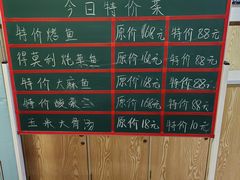 今日特价菜
特价烤鱼 原价168元 特价88元
得莫利炖菜鱼 原价168元 特价88元
特价大麻鱼 原价168元 特价88元
特价酸菜 原价168元 特价88元
玉米大骨汤 原价18元 特价10元